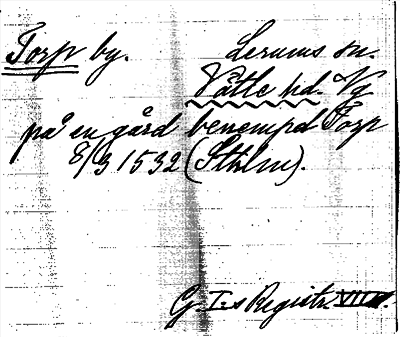 Torp by. Lerums sn.
Vättle hd. Vg
på en gård benempd Torp
8/3 1532 (Sthlm).
G. I:s Registr. VIII.